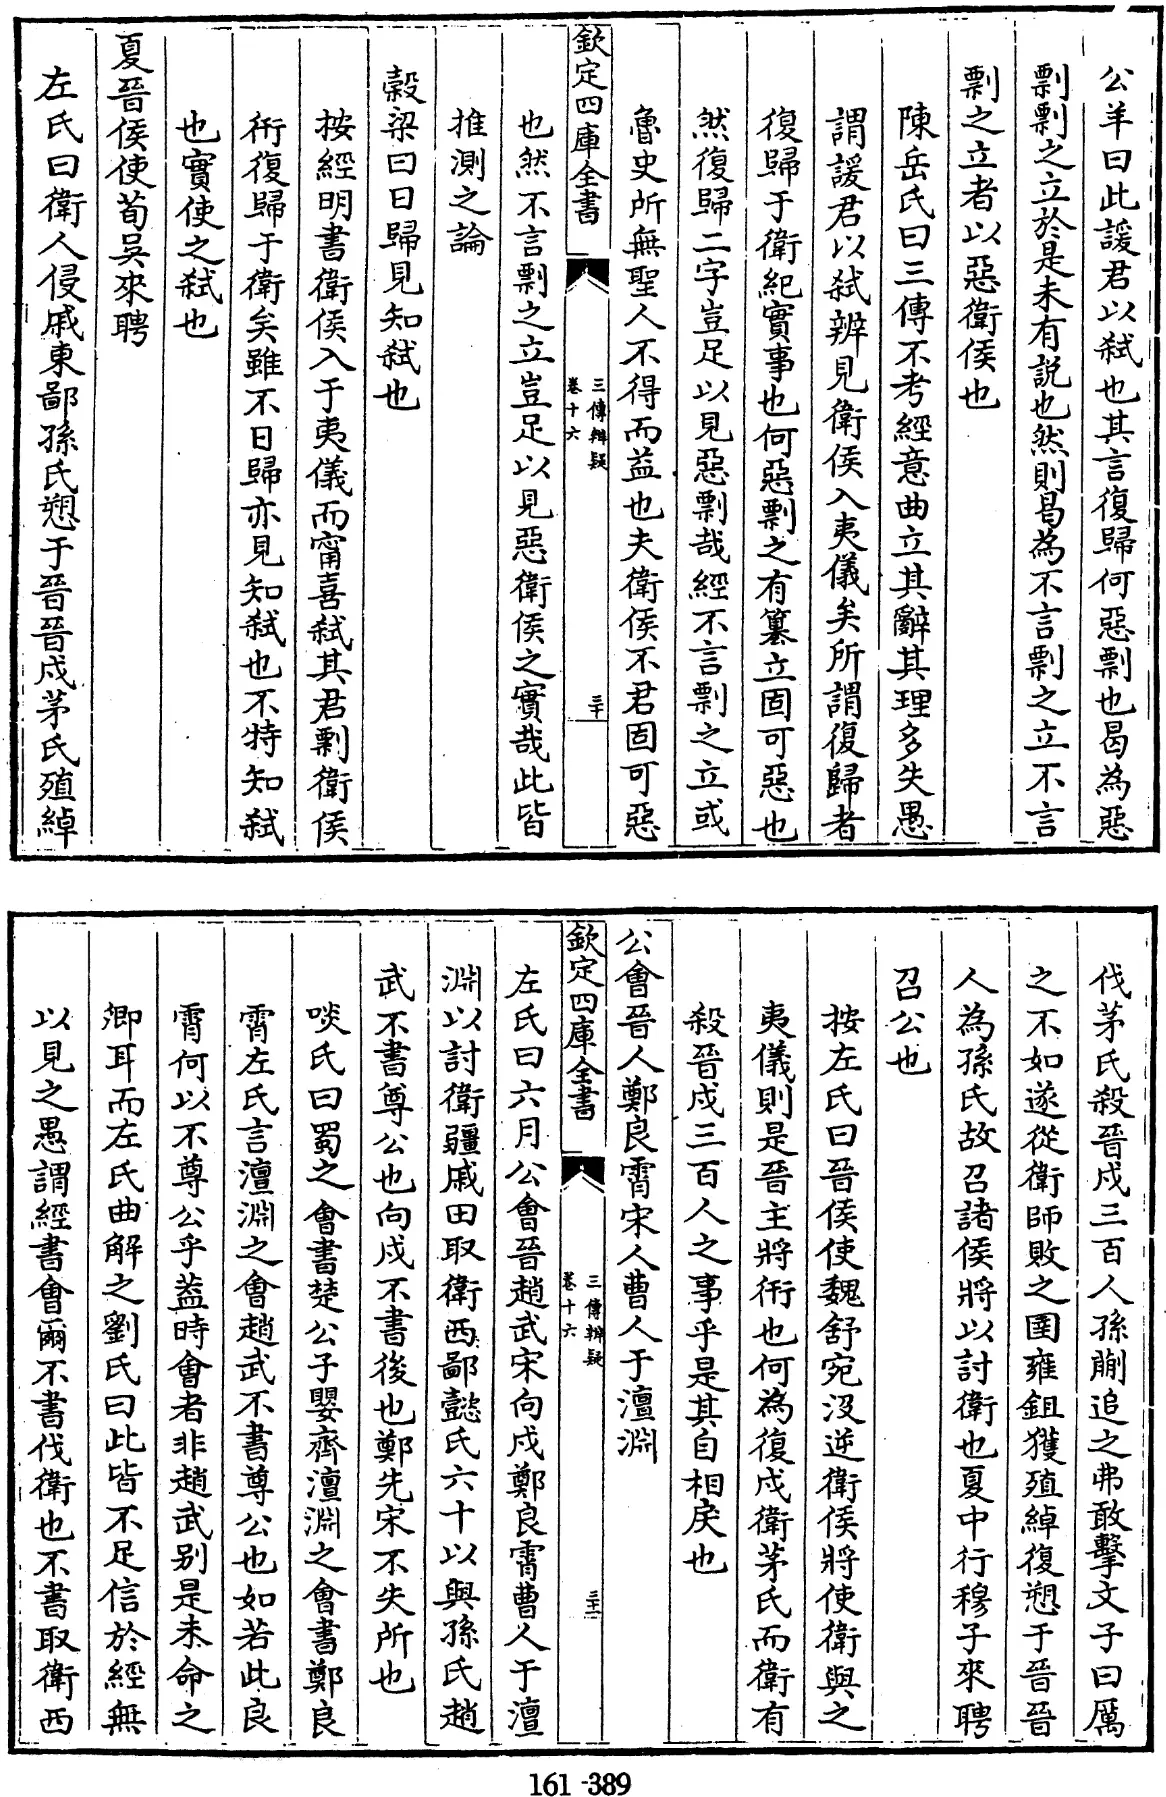 公羊曰此諼君以弒也其言復歸何惡剽也曷為惡
剽剽之立於是未有説也然則曷為不言剽之立不言
剽之立者以惡衛侯也
陳岳氏曰三傳不考經意曲立其辭其理多失愚
謂諼君以弒辨見衛侯入夷儀矣所謂復歸者
復歸于衛紀實事也何惡剽之有簒立固可惡也
然復歸二字豈足以見惡剽哉經不言剽之立或
魯史所無聖人不得而益也夫衛侯不君固可惡
欽定四庫全書
三傳辨疑
卷十六
三十
也然不言剽之立豈足以見惡衛侯之實哉此皆
推測之論
穀梁曰日歸見知弒也
按經明書衛侯入于夷儀而甯喜弒其君剽衛侯
衎復歸于衛矣雖不日歸亦見知弒也不特知弒
也實使之弒也
夏晉侯使荀吳來聘
左氏曰衛人侵戚東鄙孫氏愬于晉晉戍茅氏殖綽
伐茅氏殺晉戍三百人孫蒯追之弗敢擊文子曰厲
之不如遂從衛師敗之圉雍鉏獲殖綽復愬于晉晉
人為孫氏故召諸侯將以討衛也夏中行穆子來聘
召公也
按左氏曰晉侯使魏舒宛沒逆衛侯將使衛與之
夷儀則是晉主將衎也何為復戍衛茅氏而衛有
殺晉戍三百人之事乎是其自相戾也
公會晉人鄭良霄宋人曹人于澶淵
欽定四庫全書
三傳辨疑
卷十六
三十一
左氏曰六月公會晉趙武宋向戍鄭良霄曹人于澶
淵以討衛疆戚田取衛西鄙懿氏六十以與孫氏趙
武不書尊公也向戍不書後也鄭先宋不失所也
啖氏曰蜀之會書楚公子嬰齊澶淵之會書鄭良
霄左氏言澶淵之會趙武不書尊公也如若此良
霄何以不尊公乎葢時會者非趙武别是未命之
卿耳而左氏曲解之劉氏曰此皆不足信於經無
以見之愚謂經書會爾不書伐衛也不書取衛西
161-389